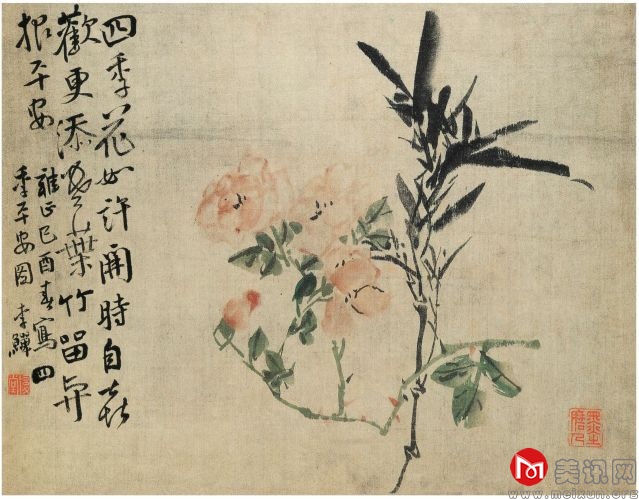 四季花如許開時自喜
歡更添葉竹留與
报平安
雍正己酉春寫四
季平安圖 李鱓
美讯网
www.meixun.org